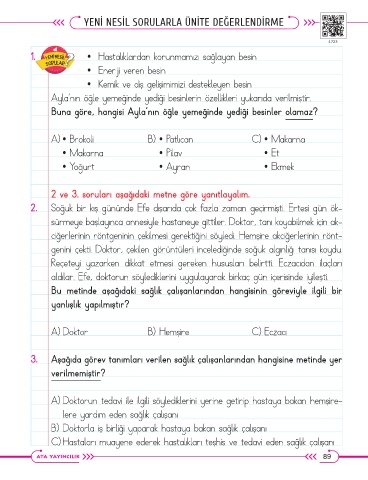 YENİ NESİL SORULARLA ÜNİTE DEĞERLENDİRME
1. YENİ NESİL SORULAR
• Hastalıklardan korunmamızı sağlayan besin
• Enerji veren besin
• Kemik ve diş gelişimimizi destekleyen besin
Ayla'nın öğle yemeğinde yediği besinlerin özellikleri yukarıda verilmiştir.
Buna göre, hangisi Ayla'nın öğle yemeğinde yediği besinler olamaz?
A) • Brokoli B) • Patlıcan C) • Makarna
• Makarna • Pilav • Et
• Yoğurt • Ayran • Ekmek
2 ve 3. soruları aşağıdaki metne göre yanıtlayalım.
2. Soğuk bir kış gününde Efe dışarıda çok fazla zaman geçirmişti. Ertesi gün ök-
sürmeye başlayınca annesiyle hastaneye gittiler. Doktor, tanı koyabilmek için ak-
ciğerlerinin röntgeninin çekilmesi gerektiğini söyledi. Hemşire akciğerlerinin rönt-
genini çekti. Doktor, çekilen görüntüleri incelediğinde soğuk algınlığı tanısı koydu.
Reçeteyi yazarken dikkat etmesi gereken hususları belirtti. Eczacıdan ilaçları
aldılar. Efe, doktorun söylediklerini uygulayarak birkaç gün içerisinde iyileşti.
Bu metinde aşağıdaki sağlık çalışanlarından hangisinin göreviyle ilgili bir
yanlışlık yapılmıştır?
A) Doktor B) Hemşire C) Eczacı
3. Aşağıda görev tanımları verilen sağlık çalışanlarından hangisine metinde yer
verilmemiştir?
A) Doktorun tedavi ile ilgili söylediklerini yerine getirip hastaya bakan hemşire-
lere yardım eden sağlık çalışanı
B) Doktorla iş birliği yaparak hastaya bakan sağlık çalışanı
C) Hastaları muayene ederek hastalıkları teşhis ve tedavi eden sağlık çalışanı
ATA YAYINCILIK 89